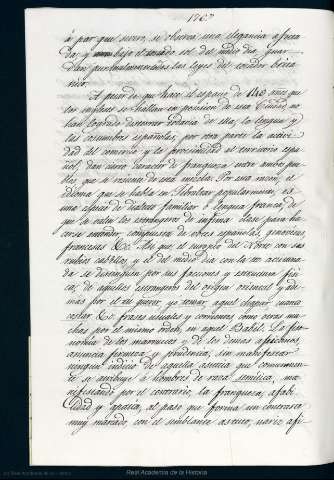 á par que severa, se observa una elegancia afecta
da; y aun bajo el sol del medio dia, guar
dan puntualmente las leyes del tocador brita
nico.
Al pesar de que hace el espacio de 140 años que
los ingleses se hallan en posesion de esa Ciudad, no
han logrado desterrar todavia de ella, la lengua y
las costumbres españolas; por otra parte la activi
dad del comercio y la proximidad al territorio espa
ñol, dan cierto caracter de franqueza entre ambos pue
blos que se resiente de esa mezcla. Por esta razon, el
idioma que se habla en Gibraltar popularmente, es
una especie de dialecto familiar ó lengua franca, de
que se valen los estrangeros de infima clase para ha
cerse entender, compuesta de voces españolas, genovesas
francesas &c. Asi que el europeo del Norte con sus
rubios cabellos, y el del medio dia con la tez aceituna
da se distinguen por sus facciones y estructura fisi
ca, de aquellos estrangeros del origen oriental y ade
mas por el
costar &c. frases usuales y comunes como otras mu
chas por el mismo orden, en aquel Babel. La fiso
nomia de los marruecos y de los demas africanos,
anuncia firmeza y prudencia, sin manifestar
ningun indicio de aquella astucia que comunmen
te se atribuye á hombres de raza semítica, ma
nifestando por el contrario, la franqueza, afabi
lidad y apatia, al paso que forma un contraste
muy marcado con el semblante astuto, vario afe
Real Academia de la Historia